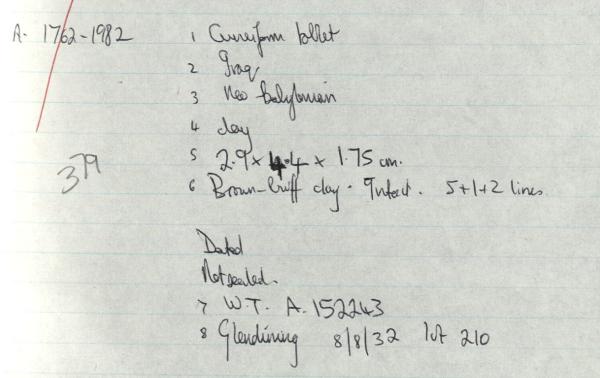 A. 1762-1982
1 Cuneiform tablet
2 Iraq
3 Neo babylonian
4 clay
5 2.9 x 4.4 x 1.75 cm.
6 Brown-buff clay. Intact. 5+1+2 lines.
379
Dated
Not sealed.
7 W.T. A.152243
8 Glendining 8/8/32 lot 210